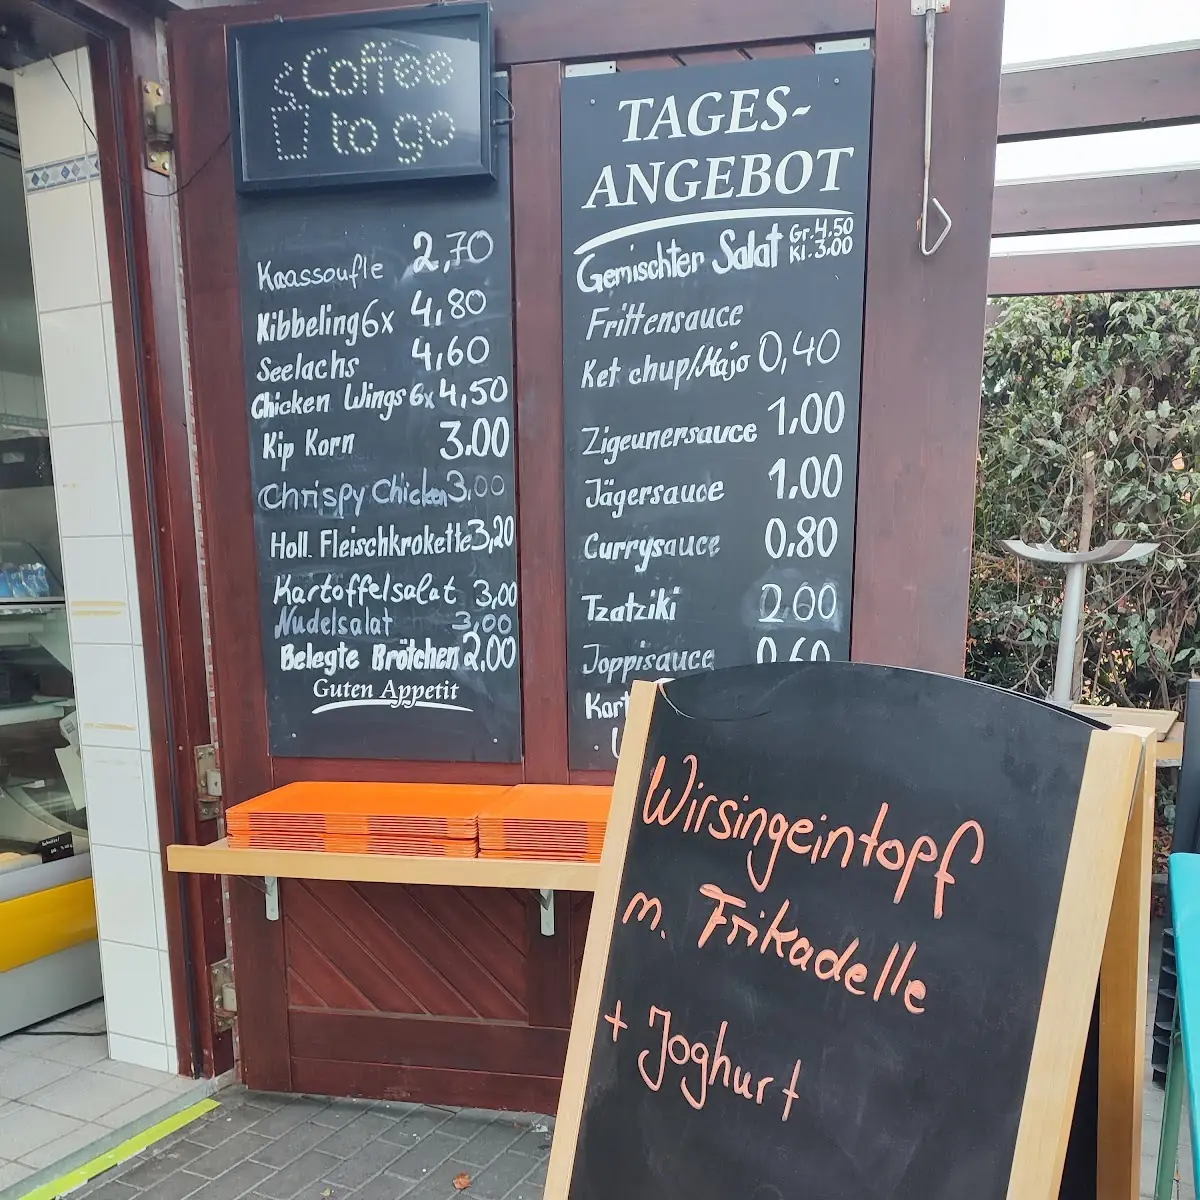 Coffee
to go
Kaassoufle 2,70
Kibbeling 6x 4,80
Seelachs 4,60
Chicken Wings 6x 4,50
Kip Korn 3,00
Chrispy Chicken 3,00
Holl. Fleischkrokette 3,20
Kartoffelsalat 3,00
Nudelsalat 3,00
Belegte Brötchen 2,00
Guten Appetit
TAGES-
ANGEBOT
Gemischter Salat Gr. 4.50
Kl. 3.00
Frittensauce
Ketchup/Majo 0,40
Zigeunersauce 1.00
Jägersauce 1.00
Currysauce 0.80
Tzatziki 2.60
Joppisauce 0.60
Kart
Wirsingeintopf
m. Frikadelle
+ Joghurt